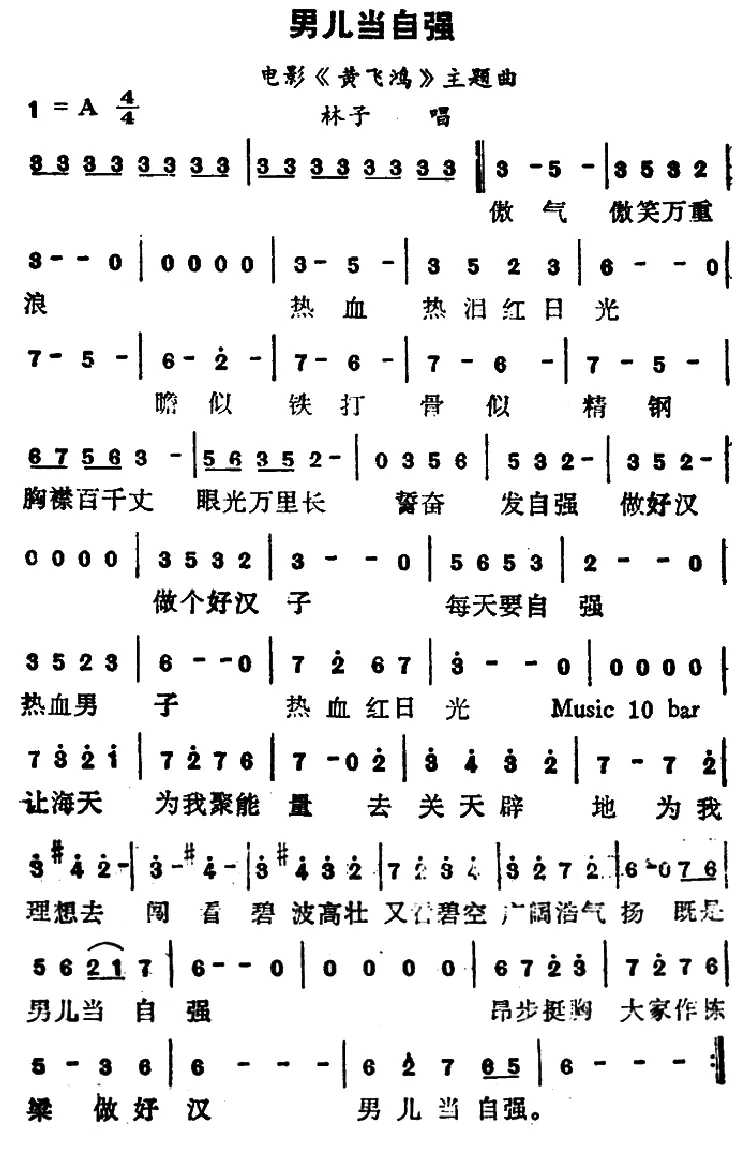 男儿当自强
电影《黄飞鸿》主题曲
1 = A 4/4
林子 唱
3 3 3 3 3 3 3 3 | 3 3 3 3 3 3 3 3 ‖ 3 - 5 - | 3 5 3 2 |
傲 气 傲笑万重
3 - - 0 | 0 0 0 0 | 3 - 5 - | 3 5 2 3 | 6 - - 0 |
浪 热 血 热 泪红日 光
7 - 5 - | 6 - 2̇ - | 7 - 6 - | 7 - 6 - | 7 - 5 - |
瞻 似 铁 打 骨 似 精 钢
6 7 5 6 3 - | 5 6 3 5 2 - | 0 3 5 6 | 5 3 2 - | 3 5 2 - |
胸襟百千丈 眼光万里长 誓奋 发自强 做好汉
0 0 0 0 | 3 5 3 2 | 3 - - 0 | 5 6 5 3 | 2 - - 0 |
做个好汉 子 每天要自 强
3 5 2 3 | 6 - - 0 | 7 2̇ 6 7 | 3̇ - - 0 | 0 0 0 0 |
热血男 子 热 血红日 光 Music 10 bar
7 3̇ 2̇ 1̇ | 7 2̇ 7 6 | 7 - 0 2̇ | 3̇ 4̇ 3̇ 2̇ | 7 - 7 2̇ |
让海天 为我聚能 量 去 关 天 辟 地 为 我
3̇ #4̇ 2̇ - | 3̇ - #4̇ - | 3̇ #4̇ 3̇ 2̇ | 7 2̇ 3̇ 4̇ | 3̇ 2̇ 7 2̇ | 6 - 0 7 6 |
理想去 闯 看 碧 波高壮 又看碧空 广阔浩气 扬 既是
5 6 2̇ 1̇ 7 | 6 - - 0 | 0 0 0 0 | 6 7 2̇ 3̇ | 7 2̇ 7 6 |
男儿当 自 强 昂步挺胸 大家作栋
5 - 3 6 | 6 - - - | 6 2̇ 7 6 5 | 6 - - - :‖
梁 做好 汉 男 儿 当 自强。